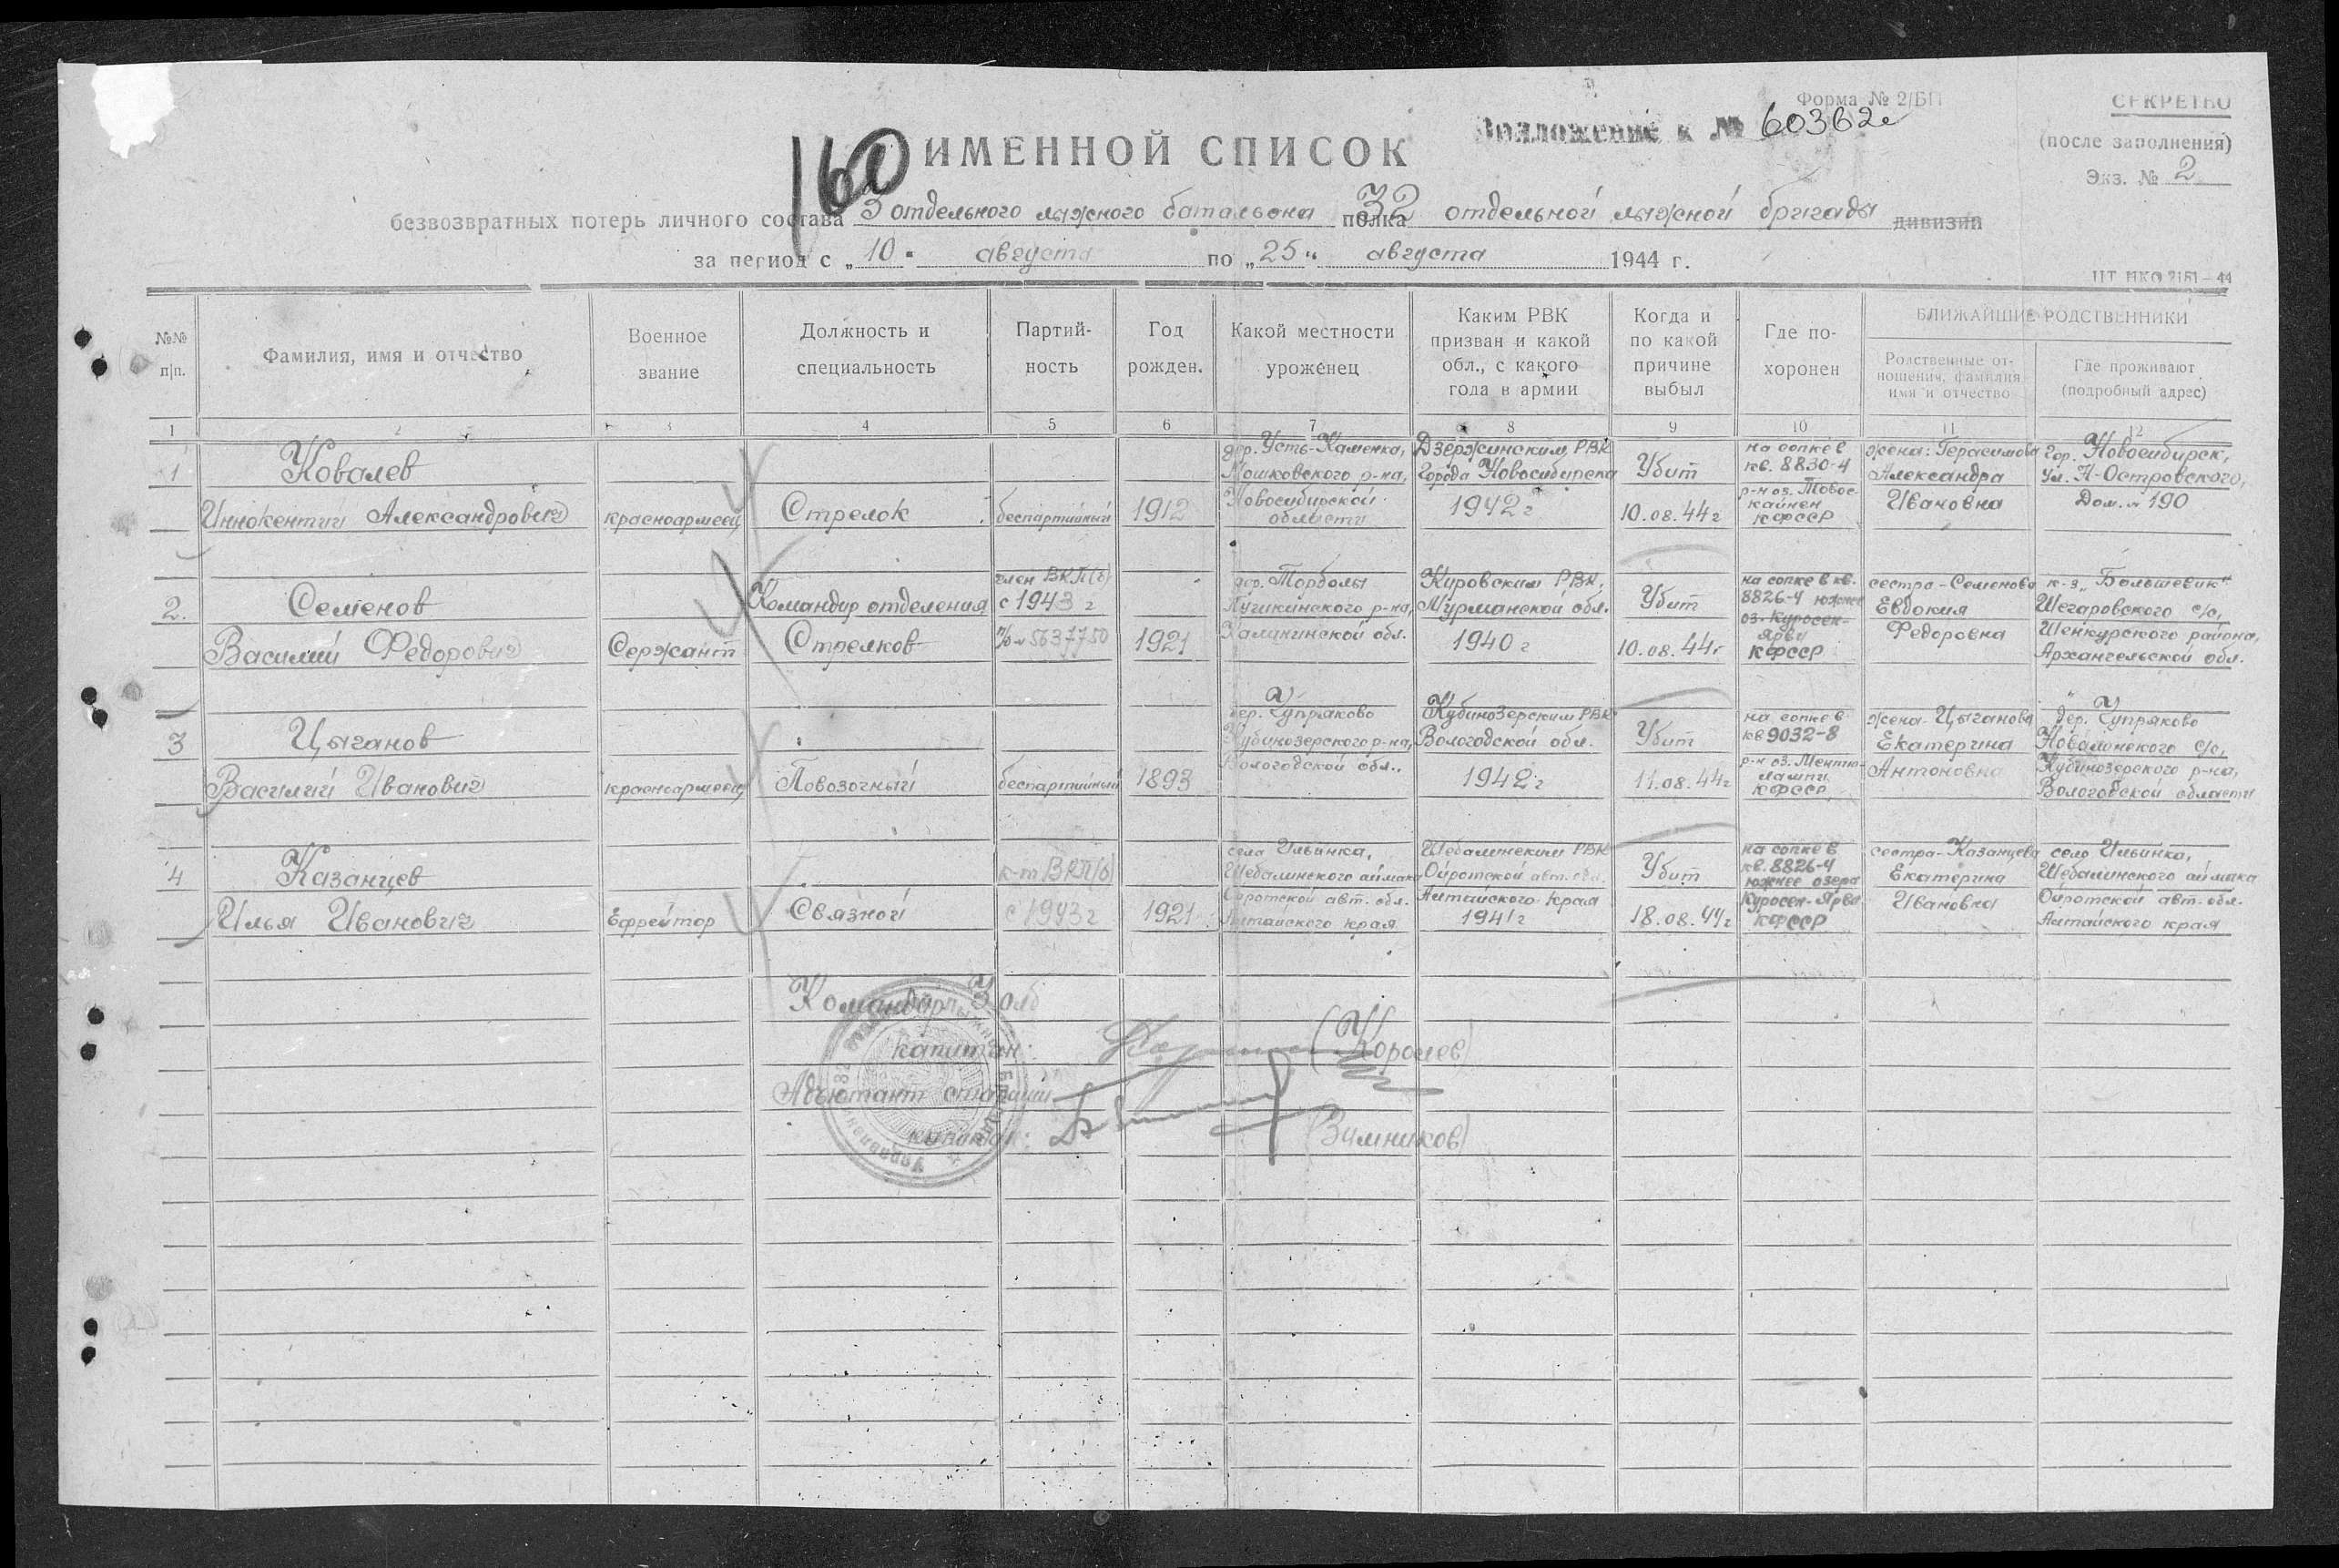 Форма № 2/БП
СЕКРЕТНО
(после заполнения)
Экз. № 2
к № 60362с
160
ИМЕННОЙ СПИСОК
безвозвратных потерь личного состава 3 отдельного лыжного батальона полка 32 отдельной лыжной бригады дивизии
за период с „10" августа по „25" августа 1944 г.
ЦТ НКО 7151—44
№№ п|п.
Фамилия, имя и отчество
Военное звание
Должность и специальность
Партий-
ность
Год рожден.
Какой местности уроженец
Каким РВК
призван и какой
обл., с какого
года в армии
Когда и
по какой
причине
выбыл
Где по-
хоронен
БЛИЖАЙШИЕ РОДСТВЕННИКИ
Родственные от-
ношения, фамилия
имя и отчество
Где проживают
(подробный адрес)
1 2 3 4 5 6 7 8 9 10 11 12
1
Ковалев
Иннокентий Александрович
красноармеец
Стрелок
беспартийный
1912
дер. Усть-Каменка,
Мошковского р-на,
Новосибирской
области
Дзержинским РВК
города Новосибирска
1942 г
Убит
10.08.44 г
на сопке в
кв. 8830-4
р-н оз. Товос-
кайнен
КФССР
жена: Герасимова
Александра
Ивановна
гор. Новосибирск,
ул. Н-Островского,
Дом. № 190
2.
Семенов
Василий Федорович
Сержант
Командир отделения
Стрелков
член ВКП(б)
с 1943 г
п/б № 5637750
1921
дер. Торболы
р-на,
Калининской обл.
Кировским РВК,
Мурманской обл.
1940 г
Убит
10.08.44 г
на сопке в кв.
8826-4 южнее
оз. Куросен-
Ярви
КФССР
сестра - Семенова
Евдокия
Федоровна
к-з „Большевик"
Шегаровского с/с,
Шенкурского района,
Архангельской обл.
3
Цыганов
Василий Иванович
красноармеец
Повозочный
беспартийный
1893
дер. Чупряково
Кубинозерского р-на,
Вологодской обл.
Кубинозерским РВК
Вологодской обл.
1942 г
Убит
11.08.44 г
на сопке в
кв 9032-8
р-н оз. Ментю-
лампи
КФССР
жена - Цыганова
Екатерина
Антоновна
дер. Чупряково
Новоленского с/с,
Кубинозерского р-на,
Вологодской области
4
Казанцев
Илья Иванович
Ефрейтор
Связной
к-т ВКП(б)
с 1943 г
1921
село Ильинка,
Шебалинского аймака
Ойротской авт. обл.
Алтайского края
Шебалинским РВК
Ойротской авт. обл.
Алтайского края
1941 г
Убит
18.08.44 г
на сопке в
кв. 8826-4
южнее озера
Куросен-Ярви
КФССР
сестра - Казанцева
Екатерина
Ивановна
село Ильинка,
Шебалинского аймака
Ойротской авт. обл.
Алтайского края
Командир 3 олб
капитан: (Королев)
Адъютант старший
капитан: (Зимников)